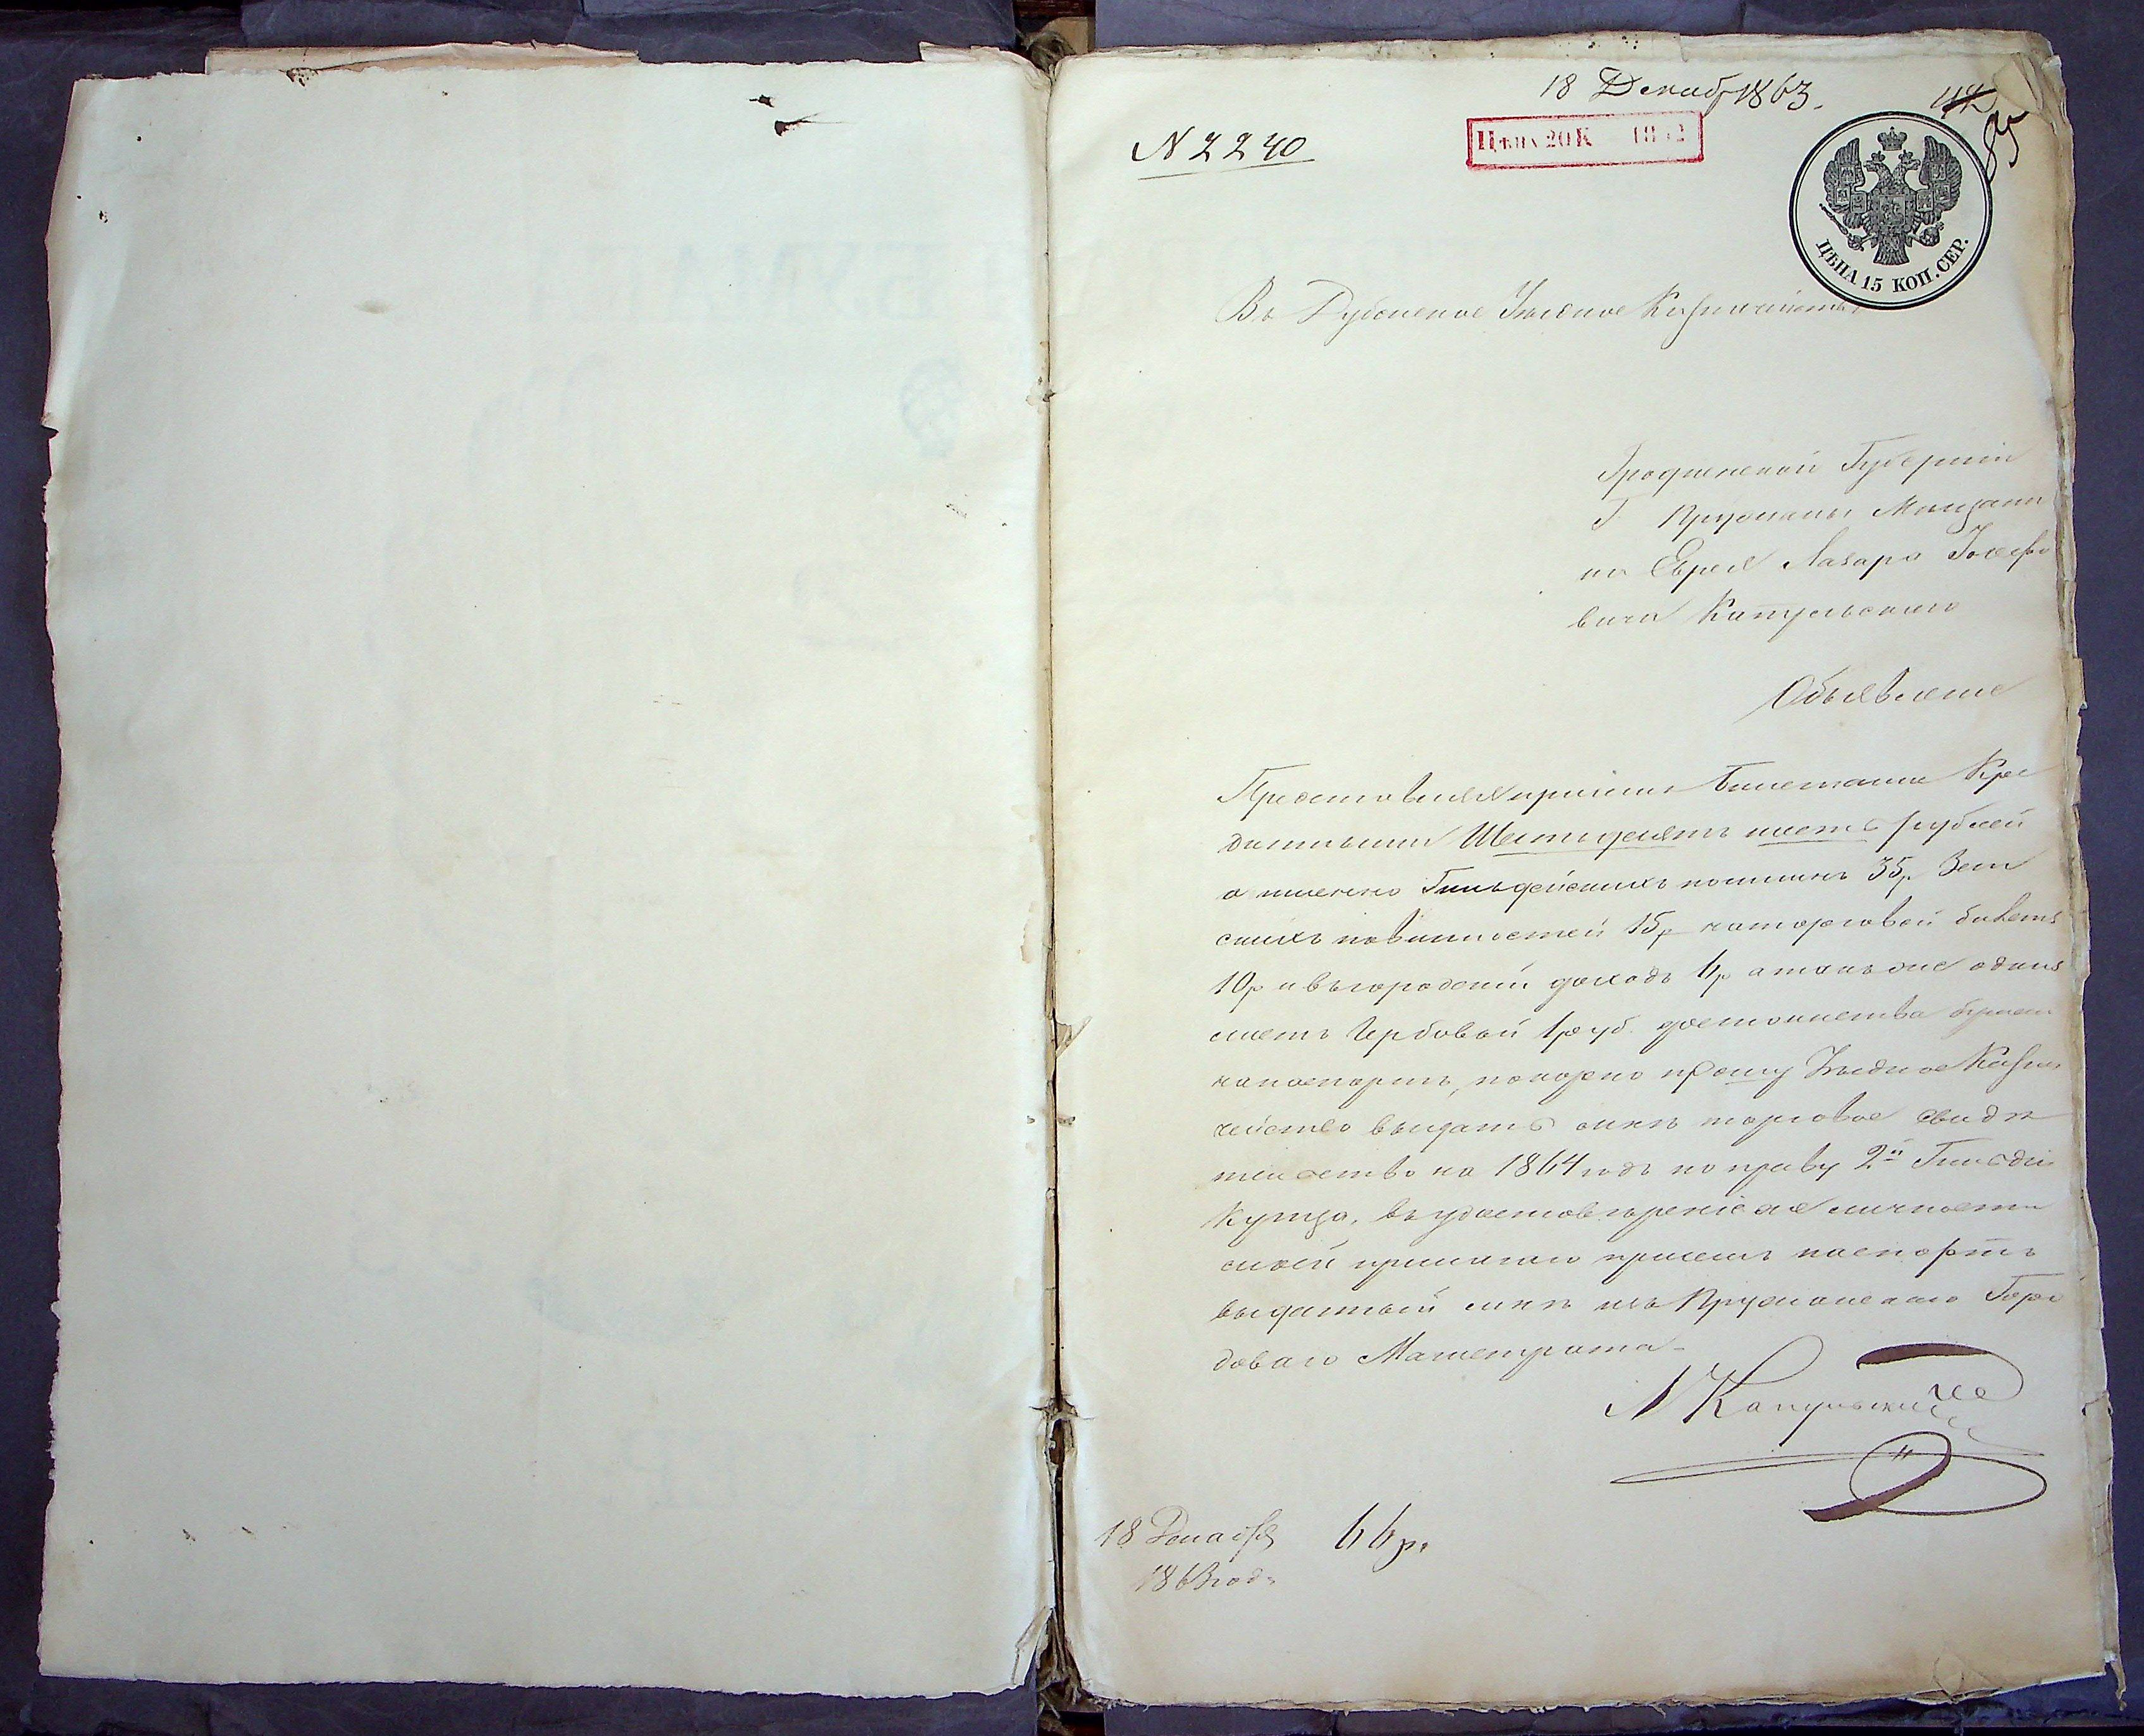 18 Декаб 1863.
N 2240
Цѣна 20 К 18 2
ЦѢНА 15 КОП. СЕР.
Въ Дубенское Уѣздное Казначейство
Гродненской Губерніи
Г. Пружаны Мещани
на Еврея Лазаря Іосефо
вича Капульскаго
Объявленіе
Представляя при семъ билетами Кре
дитными Шестьдесятъ шесть рублей
а именно Гильдейскихъ пошлинъ 35р Зем
скихъ повинностей 15р на торговой билетъ
10р и въ городской доходъ 6р а также одинъ
листъ Гербовой 1 руб. достоинства бумаги
на паспортъ, покорно прошу Уѣздное Казна
чейство выдать мнѣ торговое Свидѣ
тельство на 1864 годъ по праву 2й Гильдіи
Купца, въ удостовѣреніе же личности
своей прилагаю при семъ паспортъ
выданный мнѣ изъ Пружанскаго Горо
доваго Магистрата
Л Капульскій
18 Декабря 66р.
1863 года